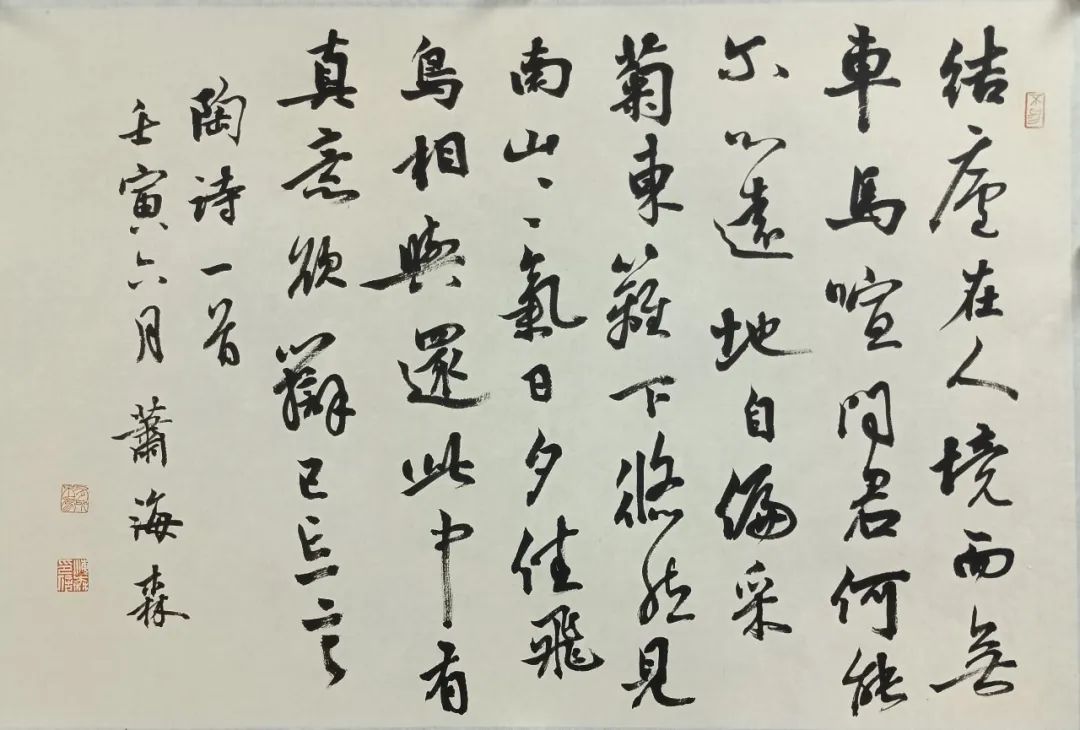 結廬在人境而無
車馬喧問君何能
尔心遠地自偏采
菊東籬下悠然見
南山山氣日夕佳飛
鳥相與還此中有
真意欲辯已忘言
陶詩一首
壬寅六月蕭海森